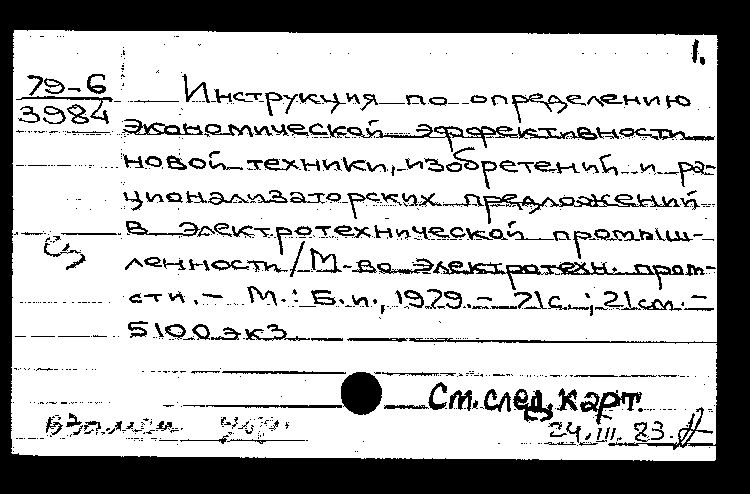 1.
79-6
3984
Инструкция по определению
экономической эффективности
новой техники, изобретений и ра-
ционализаторских предложений
в электротехнической промыш-
ленности / М-во электротехн. пром-
сти. – М.: Б.и., 1979. – 71с.; 21см. –
5100 экз.
См. след. карт.
взамен
24.III.83.